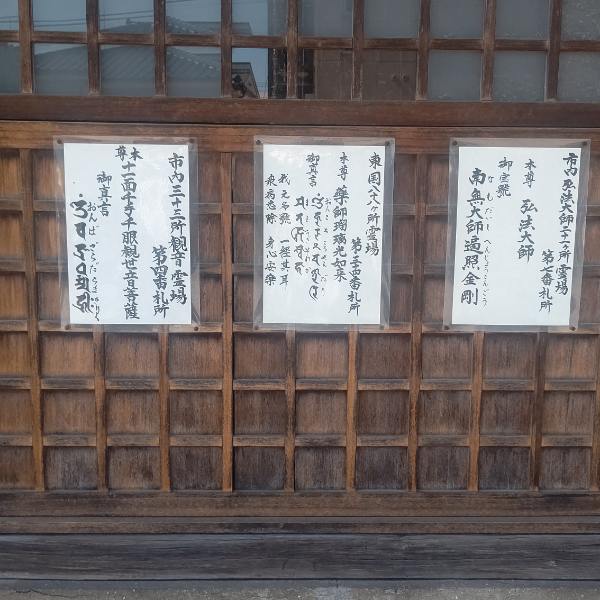 市内弘法大師二十一ヶ所霊場
第七番札所
本尊 弘法大師
御宝號
なむだいしへんじょうこんごう
南無大師遍照金剛
東国八十八ヶ所霊場
第三十四番札所
本尊 薬師瑠璃光如来
御真言
我之名號 一經其耳
衆病悉除 身心安楽
市内三十三所観音霊場
第四番札所
本尊 十一面千手千眼観世音菩薩
御真言
おんばざらだらまきりく